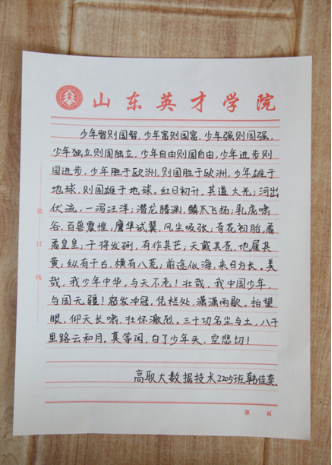 山东英才学院
少年智则国智，少年富则国富，少年强则国强，
少年独立则国独立，少年自由则国自由，少年进步则
国进步，少年胜于欧洲，则国胜于欧洲，少年雄于
地球，则国雄于地球，红日初升，其道大光；河出
伏流，一泻汪洋；潜龙腾渊，鳞爪飞扬；乳虎啸
谷，百兽震惶；鹰隼试翼，风尘吸张；奇花初胎，矞
矞皇皇；干将发硎，有作其芒；天戴其苍，地履其
黄；纵有千古，横有八荒；前途似海，来日方长。美
哉，我少年中华，与天不老！壮哉，我中国少年，
与国无疆！怒发冲冠，凭栏处，潇潇雨歇。抬望
眼，仰天长啸，壮怀激烈。三十功名尘与土，八千
里路云和月，莫等闲，白了少年头，空悲切！
高职大数据技术2205班韩佳奕
装订线
第 页